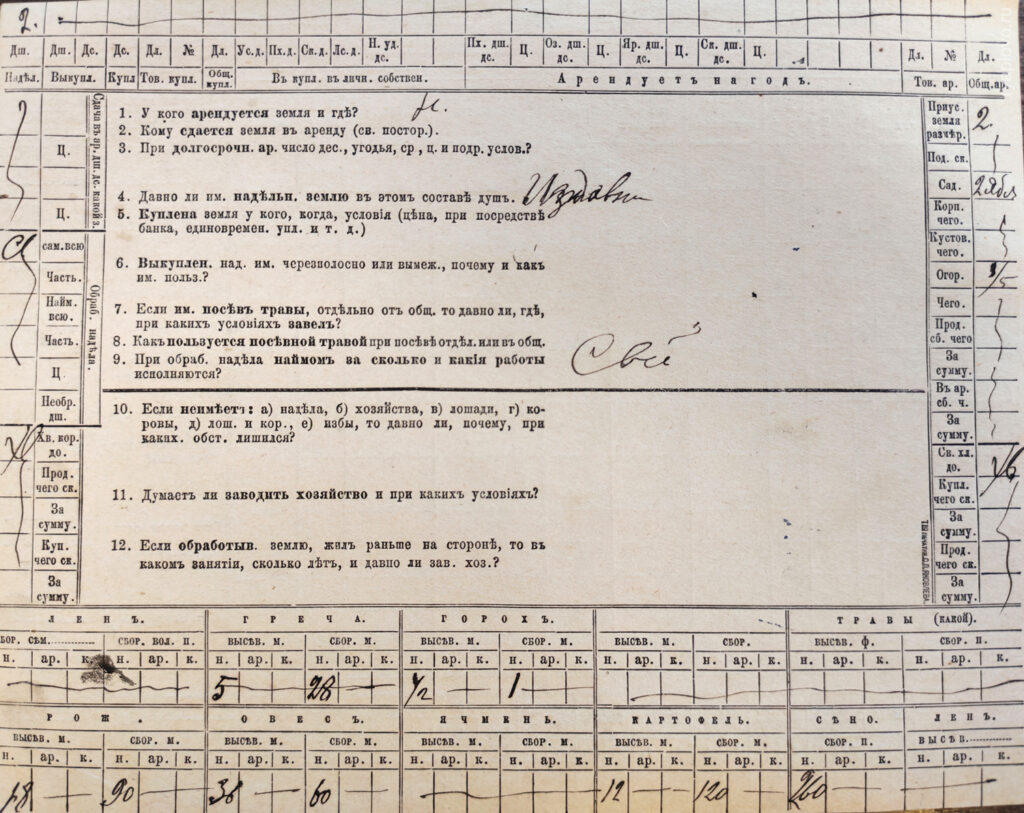 2.
Дш. Дш. Дс. Дс. Дл. № Дл. Ус.д. Пх.д. Ск.д. Лс.д. Н. уд. дс. Пх. дш. дс. Ц. Оз. дш. дс. Ц. Яр. дш. дс. Ц. Ск. дш. дс. Ц. Дл. № Дл.
Надѣл. Выкупл. Купл Тов. купл. Общ. купл. Въ купл. въ личн. собствен. Арендуетъ на годъ. Тов. ар. Общ.ар.
Сдача въ ар. дш. дс. какой з.
Ц.
Ц.
сам.всю
Часть.
Найм. всю.
Часть.
Ц.
Необр. дш.
Обраб. надѣла.
Хв. кор. до.
Прод. чего ск.
За сумму.
Куп. чего ск.
За сумму.
1. У кого арендуется земля и гдѣ?
2. Кому сдается земля въ аренду (св. постор.).
3. При долгосрочн. ар. число дес., угодья, ср , ц. и подр. услов.?
4. Давно ли им. надѣльн. землю въ этомъ составѣ душъ. Издавна
5. Куплена земля у кого, когда, условія (цѣна, при посредствѣ
банка, единовремен. упл. и т. д.)
6. Выкуплен. над. им. черезполосно или вымеж., почему и какъ
им. польз.?
7. Если им. посѣвъ травы, отдѣльно отъ общ. то давно ли, гдѣ,
при какихъ условіяхъ завелъ?
8. Какъ пользуется посѣвной травой при посѣвѣ отдѣл. или въ общ.
9. При обраб. надѣла наймомъ за сколько и какія работы
исполняются?
Свои
10. Если неимѣетъ: а) надѣла, б) хозяйства, в) лошади, г) ко-
ровы, д) лош. и кор., е) избы, то давно ли, почему, при
каких. обст. лишился?
11. Думаетъ ли заводить хозяйство и при какихъ условіяхъ?
12. Если обработыв. землю, жилъ раньше на сторонѣ, то въ
какомъ занятіи, сколько лѣтъ, и давно ли зав. хоз.?
Приус. земля размѣр. 2.
Под. ск.
Сад. 2 ябл
Корп. чего.
Кустов. чего.
Огор. 1/5
Чего.
Прод. сб. чего
За сумму.
Въ ар. сб. ч.
За сумму.
Св. хл. до.
Купл. чего ск.
За сумму.
Прод. чего ск.
За сумму.
ЛЕНЪ. ГРЕЧА. ГОРОХЪ. ТРАВЫ (КАКОЙ).
СБОР. СѢМ. СБОР. ВОЛ. П. ВЫСѢВ. М. СБОР. М. ВЫСѢВ. М. СБОР. М. ВЫСѢВ. М. СБОР. ВЫСѢВ. Ф. СБОР. П.
н. ар. к. н. ар. к. н. ар. к. н. ар. к. н. ар. к. н. ар. к. н. ар. к. н. ар. к. н. ар. к. н. ар. к.
5 28 1/2 1
РОЖ. ОВЕСЪ. ЯЧМЕНЬ. КАРТОФЕЛЬ. СѢНО. ЛЕНЪ.
ВЫСѢВ. М. СБОР. М. ВЫСѢВ. М. СБОР. М. ВЫСѢВ. М. СБОР. М. ВЫСѢВ. М. СБОР. М. СБОР. П. ВЫСѢВ.
н. ар. к. н. ар. к. н. ар. к. н. ар. к. н. ар. к. н. ар. к. н. ар. к. н. ар. к. н. ар. к. н. ар. к.
18 90 36 60 12 120 260